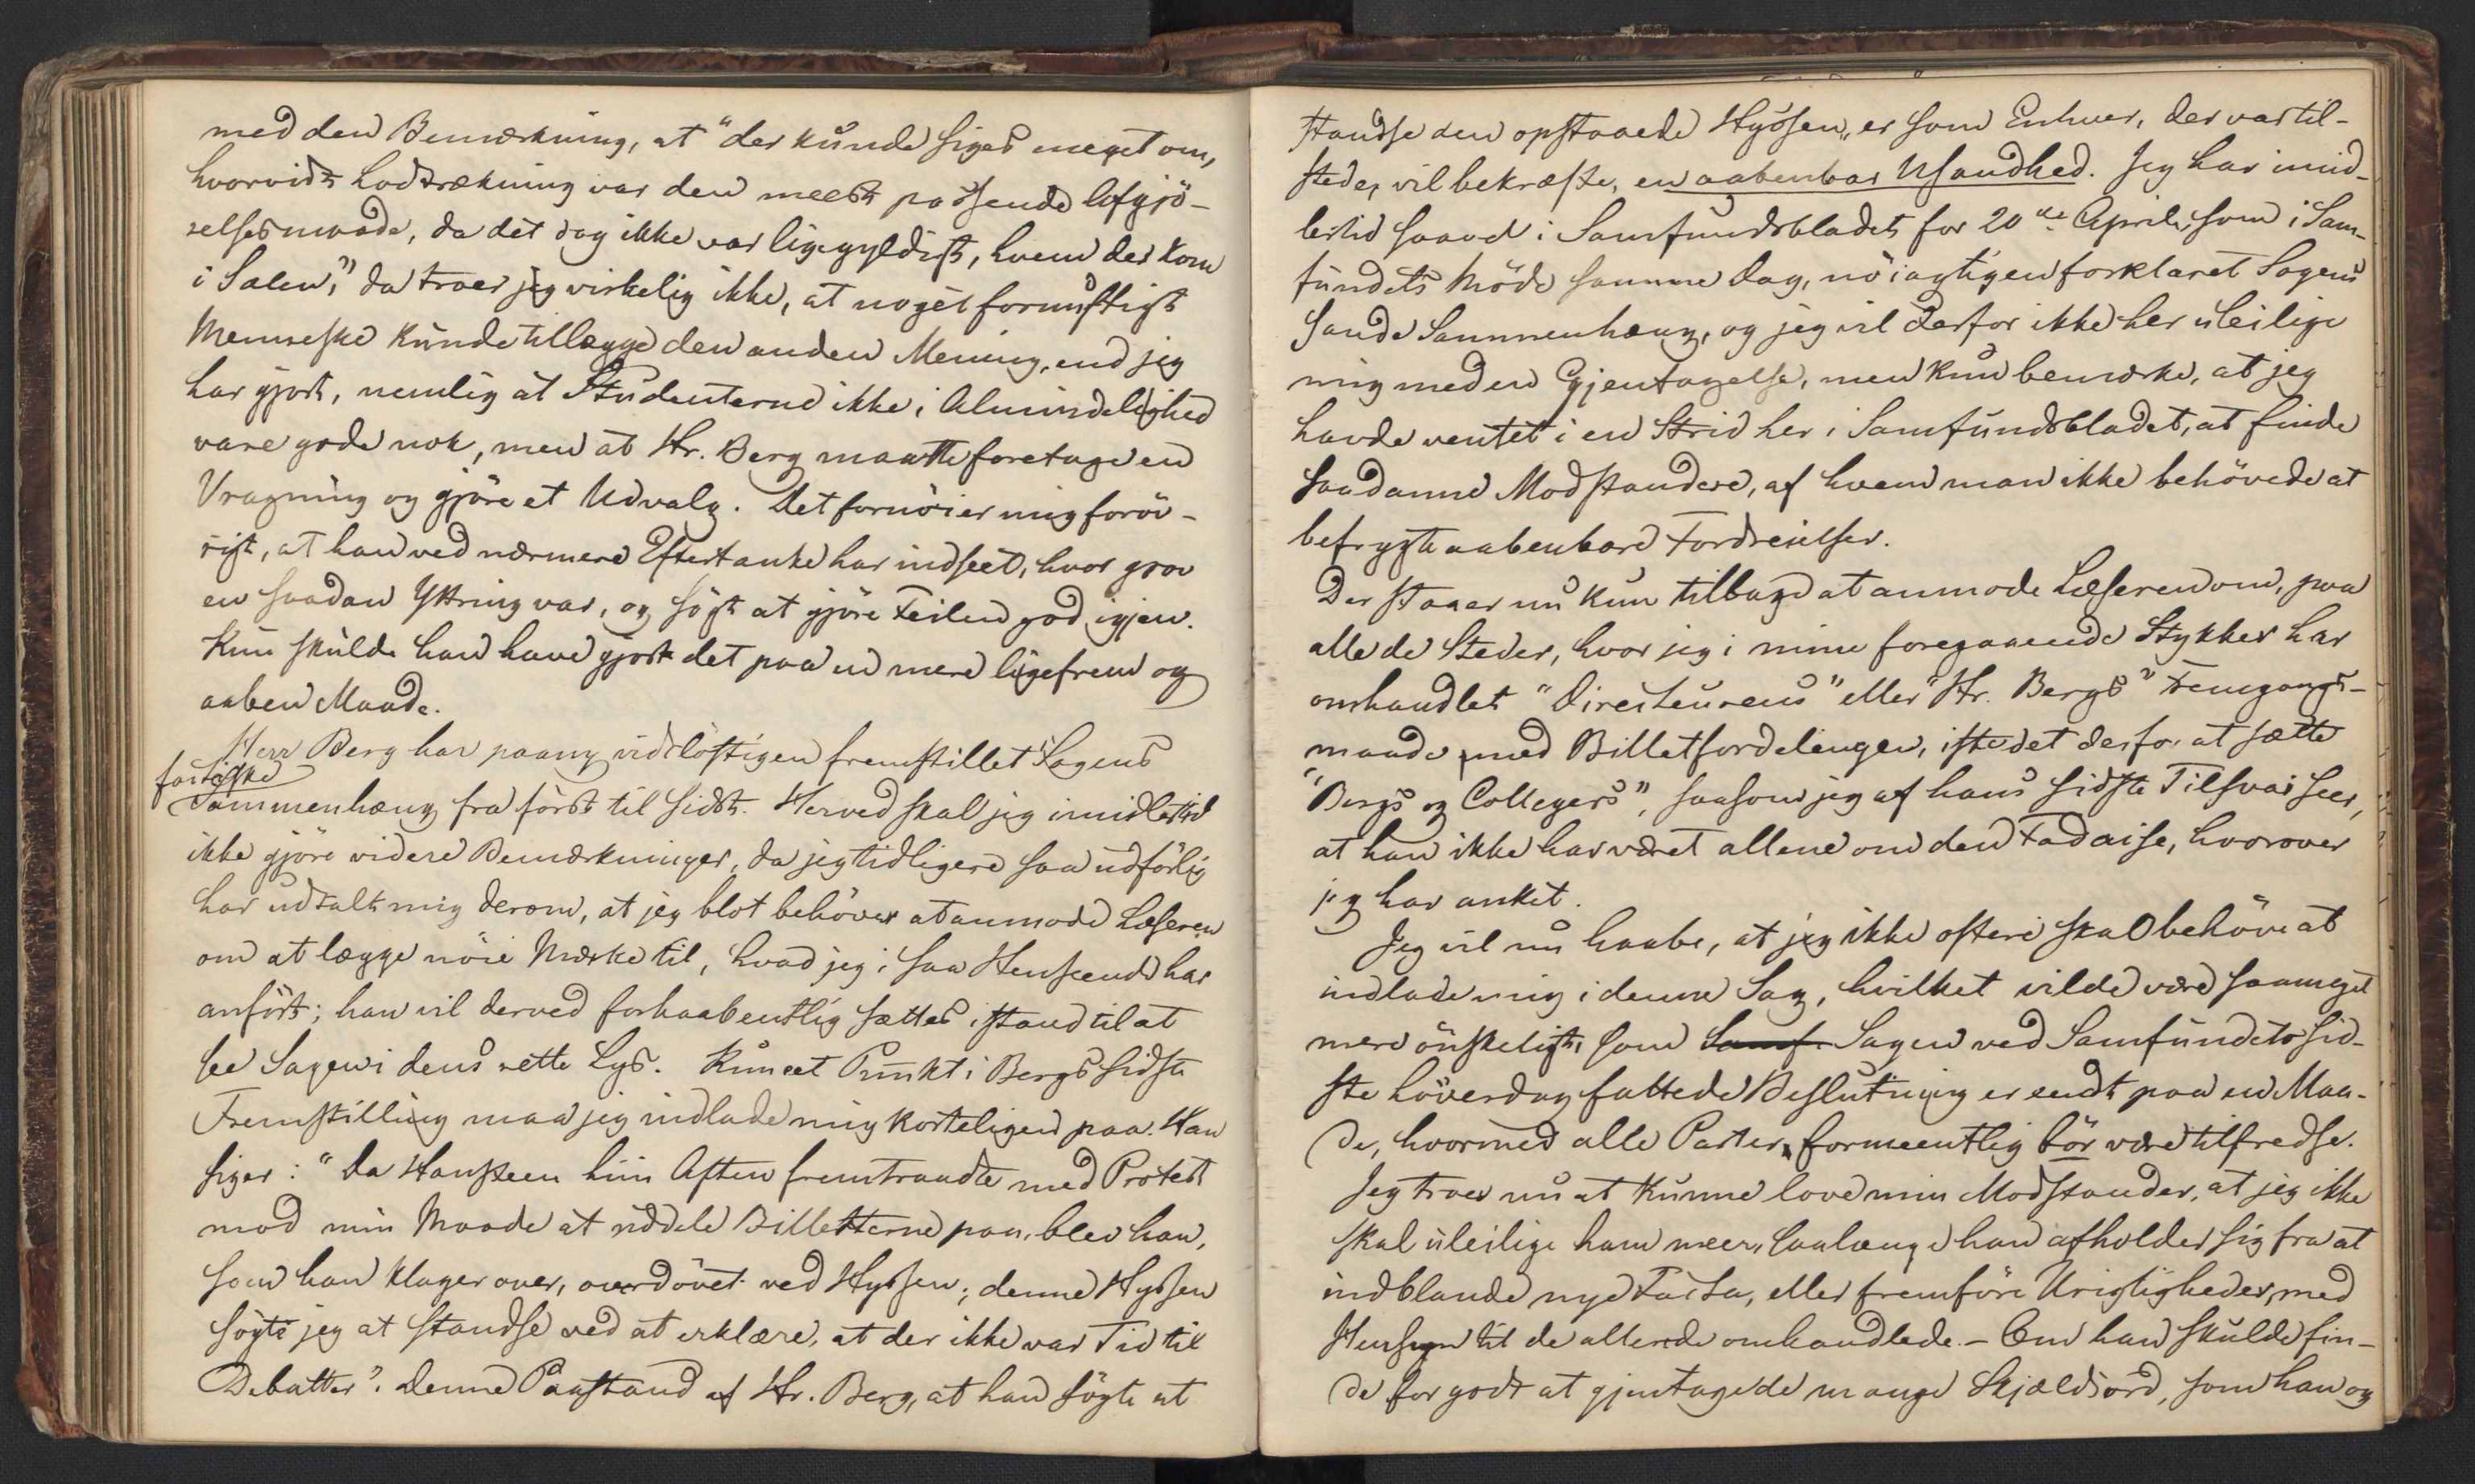 med den Bemærkning, at "der kunde siges meget om,
hvorvidt Lodtrækning var den meest passende Afgjö-
relsesmaade, da det dog ikke var ligegyldigt, hvem der kom
i Salen," da troer jeg virkelig ikke, at noget fornuftigt
Menneske kunde tillægge den anden Mening, end jeg
har gjort, nemlig at Studenterne ikke i Almindelighed
vare gode nok, men at Hr. Berg maatte foretage en
Vragning og gjöre et Udvalg. Det fornöier mig foröv-
rigt, at han ved nærmere Eftertanke har indseet, hvor grov
en saadan Yttring var, og sögt at gjöre Feilen god igjen.
Kun skulde han have gjort det paa en mere ligefrem og
aaben Maade.
Herr Berg har paany vidtlöftigen fremstillet Sagens
factiske
Sammenhæng fra först til sidst. Herved skal jeg imidlertid
ikke gjöre videre Bemærkninger, da jeg tidligere saa udförlig
har udtalt mig derom, at jeg blot behöver at anmode Læseren
om at lægge nöie Mærke til, hvad jeg i saa Henseende har
anfört; han vil derved forhaabentlig sættes istand til at
see Sagen i dens rette Lys. Kun eet Punkt i Bergs sidste
Fremstilling maa jeg indlade mig korteligen paa. Han
siger: "Da Hansteen hiin Aften fremtraadte med Protest
mod min Maade at uddele Billetterne paa, blev han,
som han klager over, overdövet ved Hyssen; denne Hyssen
sögte jeg at standse ved at erklære, at der ikke var Tid til
Debatter". Denne Paastand af Hr. Berg, at han sögte at
standse den opstaaede Hyssen, er som Enhver, der var til-
stede, vil bekræfte, en aabenbar Usandhed. Jeg har imid-
lertid saavel i Samfundsbladet for 20de April, som i Sam-
fundets Möde samme Dag, nöiagtigen forklaret Sagens
sande Sammenhæng, og jeg vil derfor ikke her uleilige
mig med en Gjentagelse, men kun bemærke, at jeg
havde ventet i en Strid her i Samfundsbladet, at finde
saadanne Modstandere, af hvem man ikke behövede at
befrygte aabenbare Fordreielser.
Der staaer nu kun tilbage at anmode Læseren om, paa
alle de Steder, hvor jeg i mine foregaaende Stykker har
omhandlet "Directeurens" eller "Hr. Bergs" Fremgangs-
maade med Billetfordelingen, istedet derfor at sætte
"Bergs og Collegers", saasom jeg af hans sidste Tilsvar seer,
at han ikke har været allene om den Fadaise, hvorover
jeg har anket.
Jeg vil nu haabe, at jeg ikke oftere skal behöve at
indlade mig i denne Sag, hvilket vilde være saameget
mere önskeligt, som Samf. Sagen ved Samfundets sid-
ste Löverdag fattede Beslutning er endt paa en Maa-
de, hvormed alle Parter formeentlig bör være tilfredse.
Jeg troer nu at kunne love min Modstander, at jeg ikke
skal uleilige ham meer, saalænge han afholder sig fra at
indblande nye Facta, eller fremföre Urigtigheder med
Hensyn til de allerede omhandlede. - Om han skulde fin-
de for godt at gjentage de mange Skjældsord, som han og